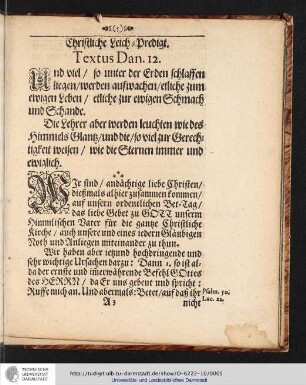 (5)
Christliche Leich-Predigt.
Textus Dan. 12.
Und viel / so unter der Erden schlaffen
liegen / werden aufwachen / etliche zum
ewigen Leben / etliche zur ewigen Schmach
und Schande.
Die Lehrer aber werden leuchten wie des
Himmels Glantz / und die / so viel zur Gerech-
tigkeit weisen / wie die Sternen immer und
ewiglich.
WIr sind / andächtige liebe Christen /
dießmals alhier zusammen kommen /
auf unsern ordentlichen Bet-Tag /
das liebe Gebet zu GOTT unserm
Himmlischen Vater für die gantze Christliche
Kirche / auch unsere und eines iedern Gläubigen
Noth und Anliegen miteinander zu thun.
Wir haben aber ietzund hochdringende und
sehr wichtige Ursachen darzu: Dann 1. so ist al-
da der ernste und iṁerwährende Befehl GOttes
des HERRN / da Er uns gebeut und spricht:
Ruffe mich an. Und abermals: Betet / auf daß ihr
Psalm. 50.
Luc. 22.
A 3
nicht
TECHNISCHE
UNIVERSITÄT
DARMSTADT
http://tudigit.ulb.tu-darmstadt.de/show/G-6222-10/0005
Universitäts- und Landesbibliothek Darmstadt